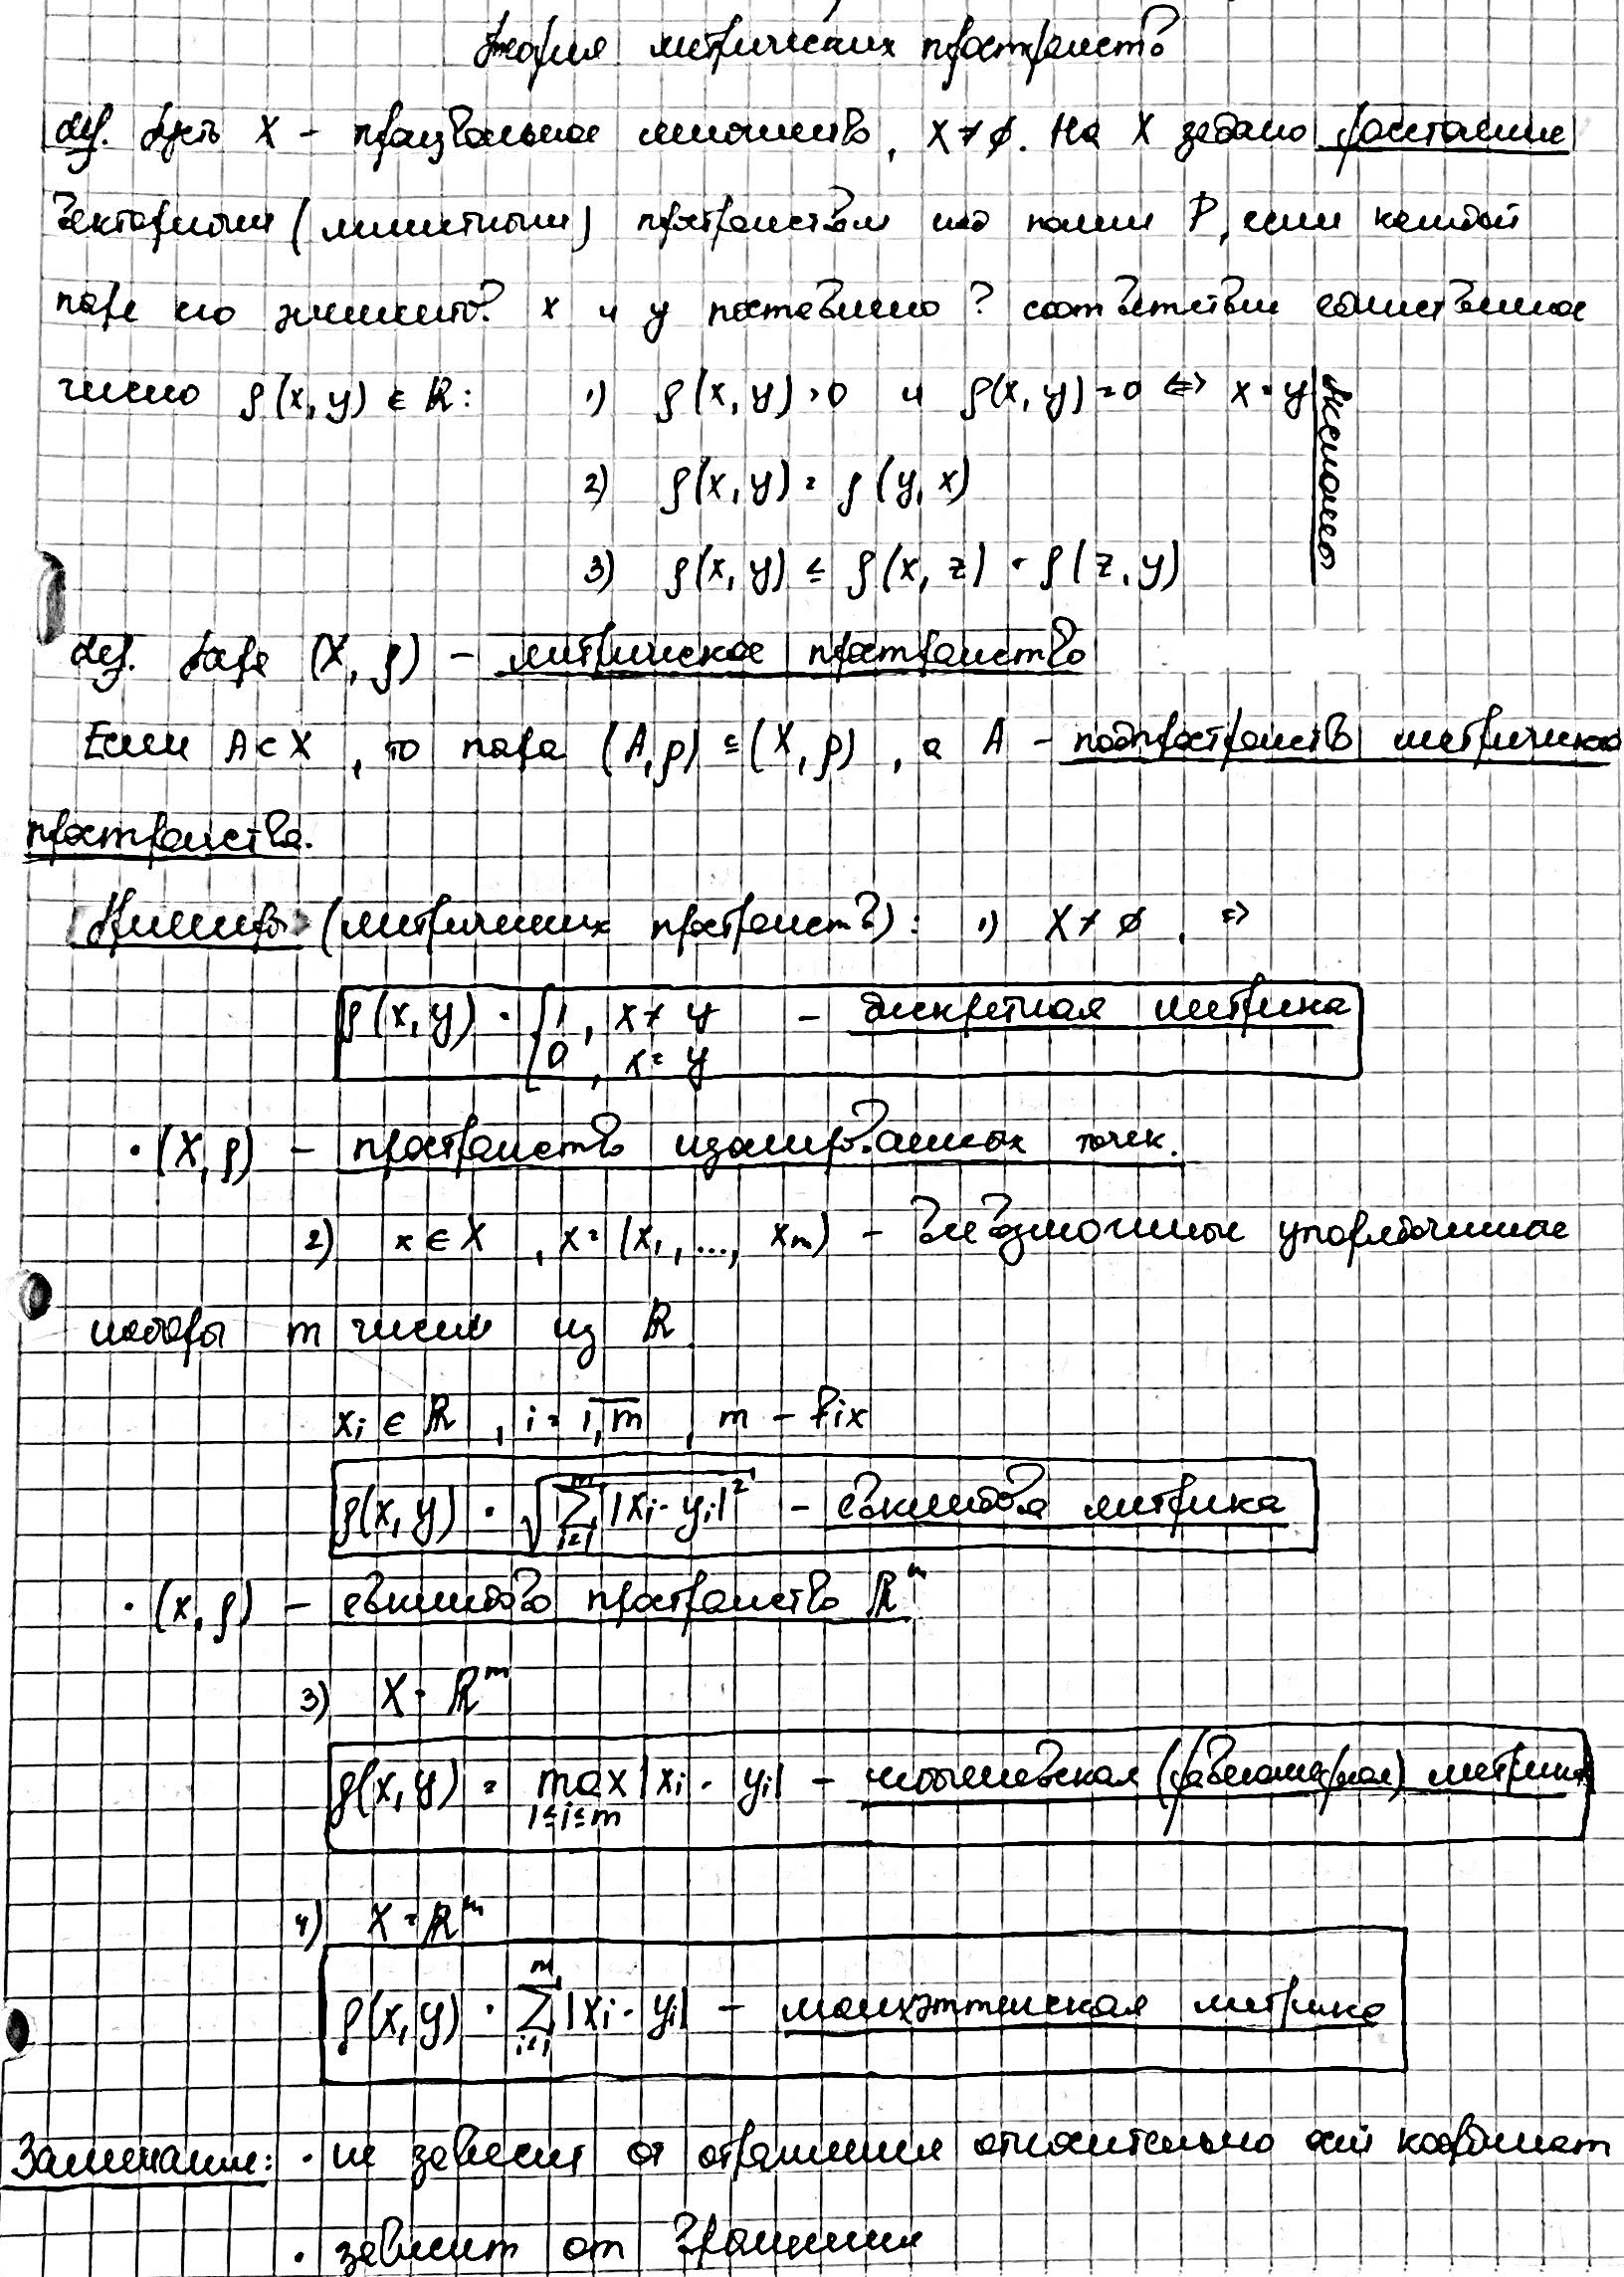 Теория метрических пространств
def. Пусть X – произвольное множество, X ≠ ∅. На X задано расстояние
векторным (линейным) пространством над полем P, если каждой
паре его элементов x и y поставлено в соответствии единственное
число ρ(x, y) ∈ R: 1) ρ(x, y) > 0 и ρ(x, y) = 0 ⇔ x = y
Аксиомы
2) ρ(x, y) = ρ(y, x)
3) ρ(x, y) ≤ ρ(x, z) + ρ(z, y)
def. Пара (X, ρ) – метрическое пространство
Если A ⊂ X, то пара (A, ρ) ⊆ (X, ρ), а A – подпространство метрического
пространства.
Примеры (метрических пространств): 1) X ≠ ∅, ⇒
ρ(x, y) = { 1, x ≠ y – дискретная метрика
0, x = y
· (X, ρ) – пространство изолированных точек.
2) x ∈ X, x = (x₁, ..., xₘ) – всевозможные упорядоченные
наборы m чисел из R.
xᵢ ∈ R, i = 1,m, m – fix
ρ(x, y) = √∑ᵢ₌₁ᵐ |xᵢ - yᵢ|² – евклидова метрика
· (x, ρ) – евклидово пространство Rᵐ
3) X = Rᵐ
ρ(x, y) = max |xᵢ - yᵢ| – чебышевская (равномерная) метрика
1≤i≤m
4) X = Rᵐ
ρ(x, y) = ∑ᵢ₌₁ᵐ |xᵢ - yᵢ| – манхэттенская метрика
Замечание: · не зависит от отражения относительно осей координат
· зависит от вращения